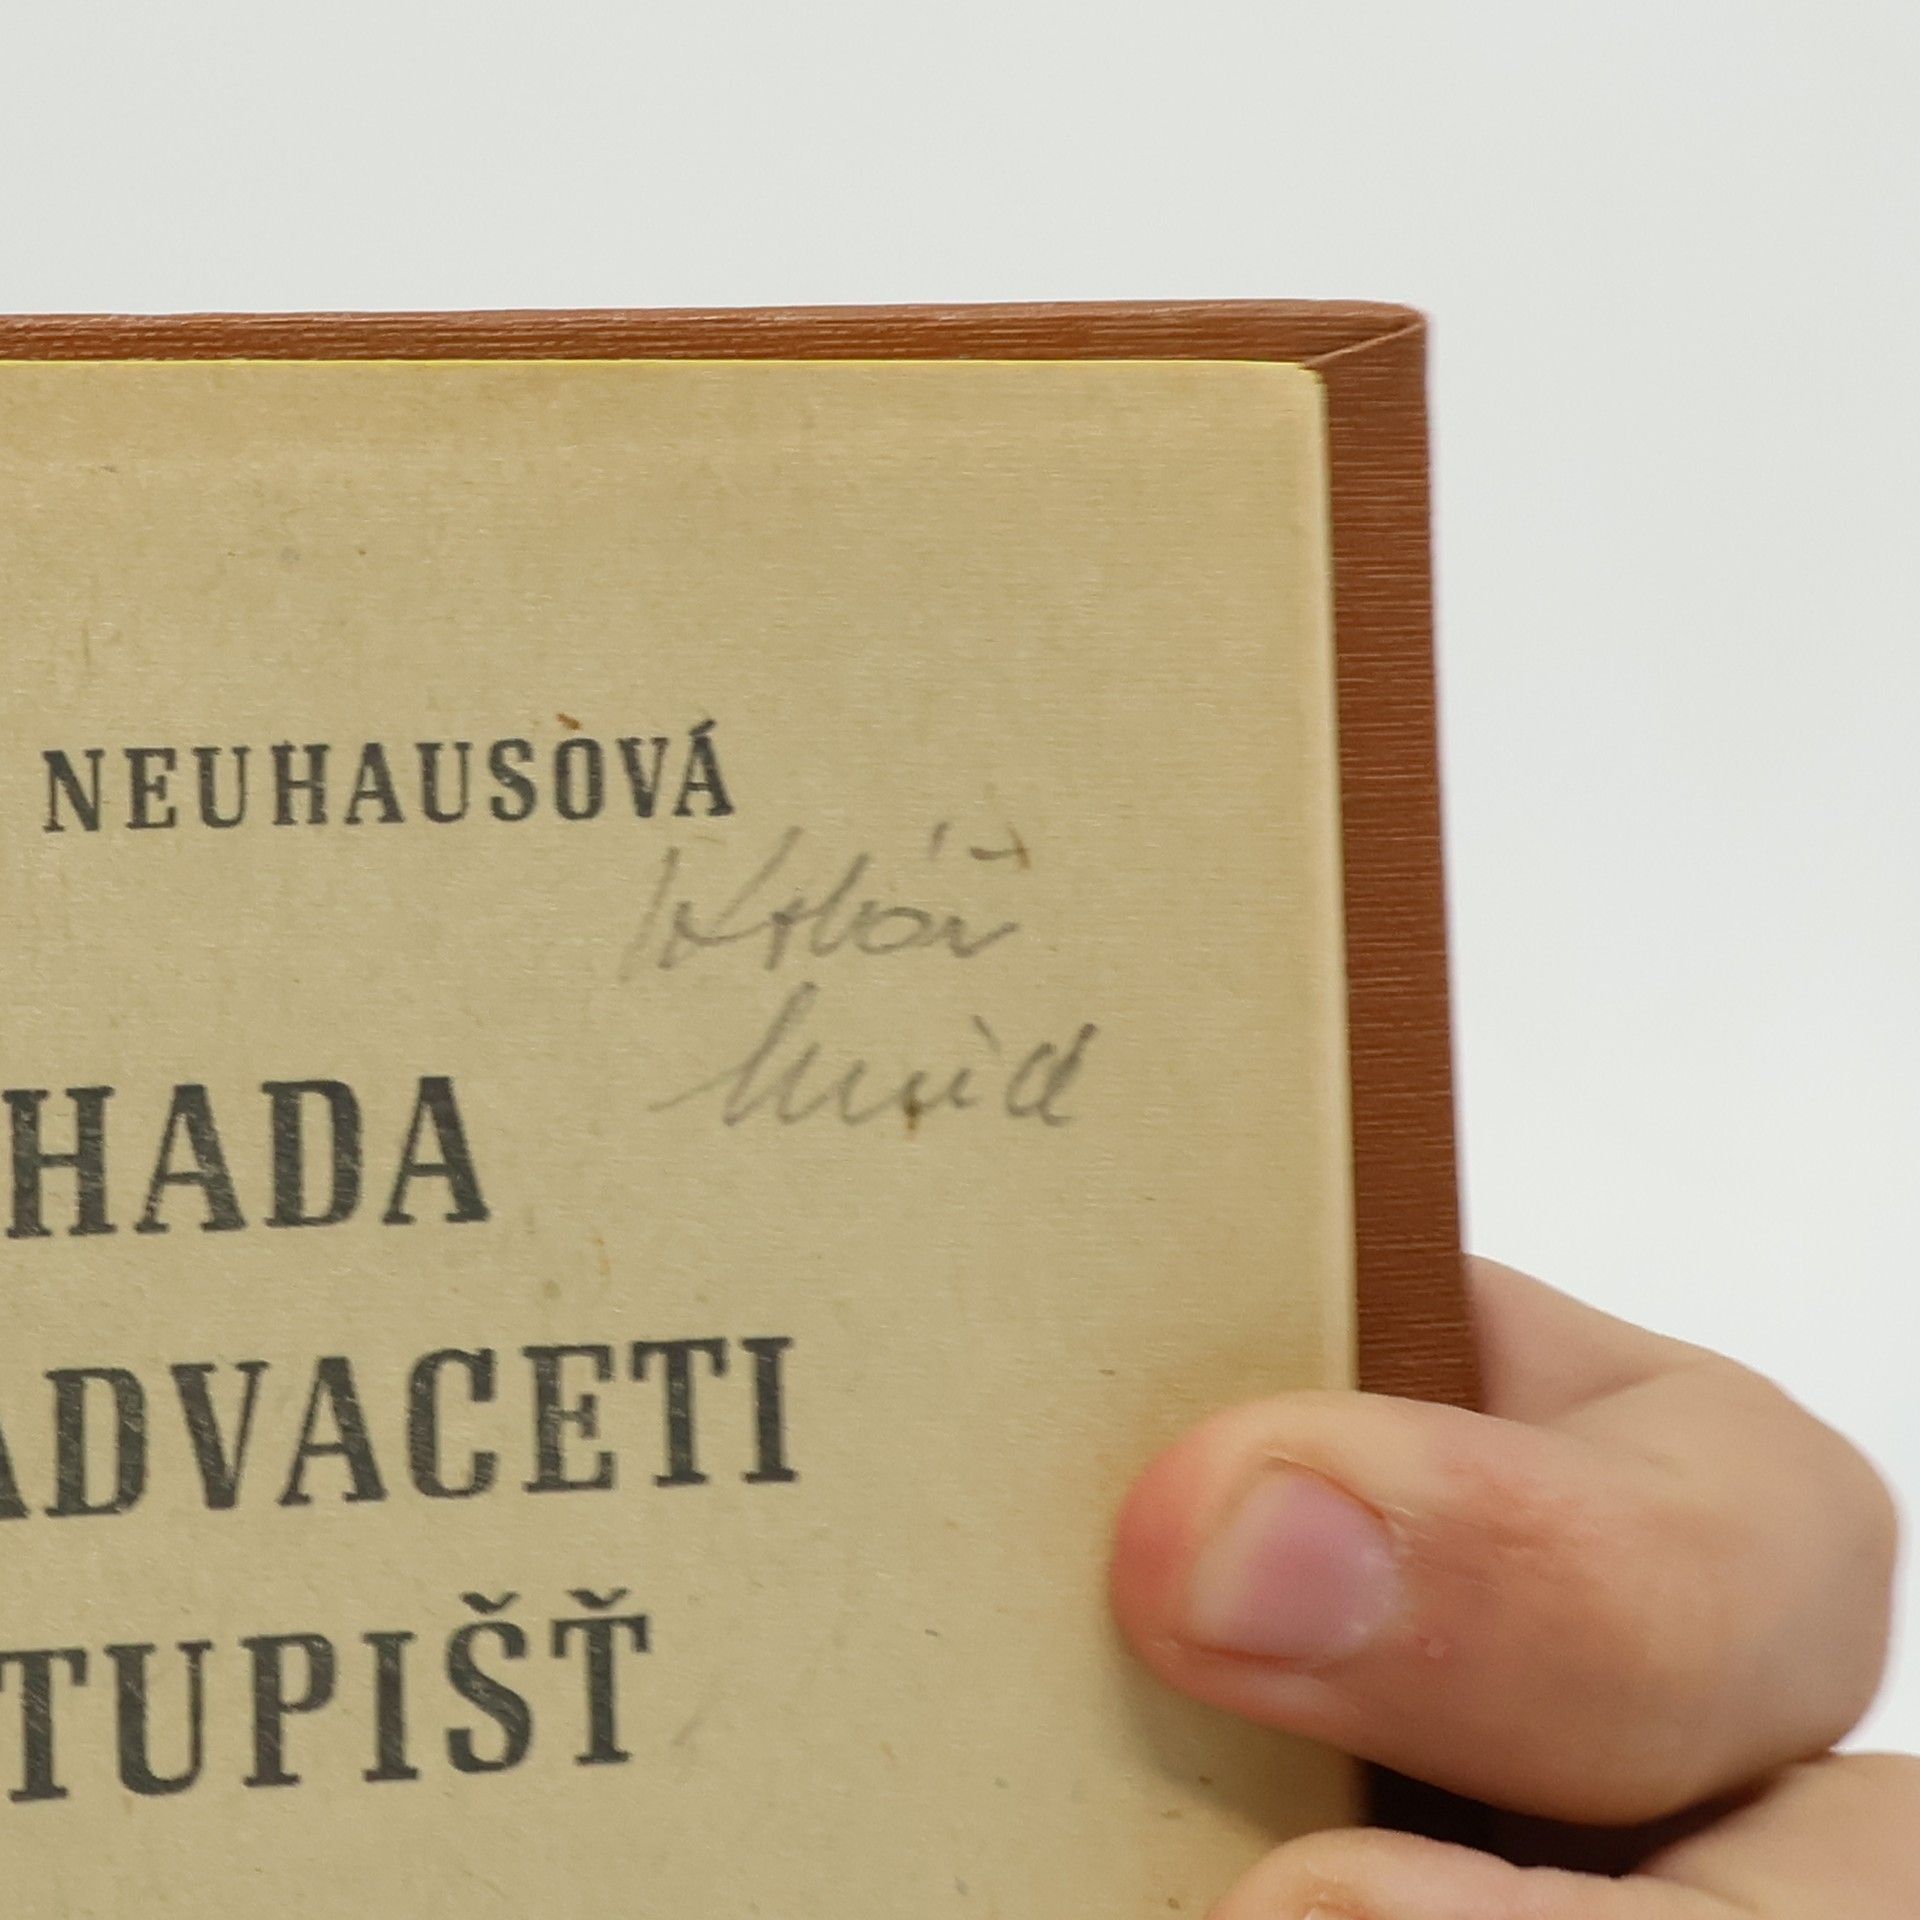 NEUHAUSOVÁ
HADA
ADVACETI
TUPIŠŤ